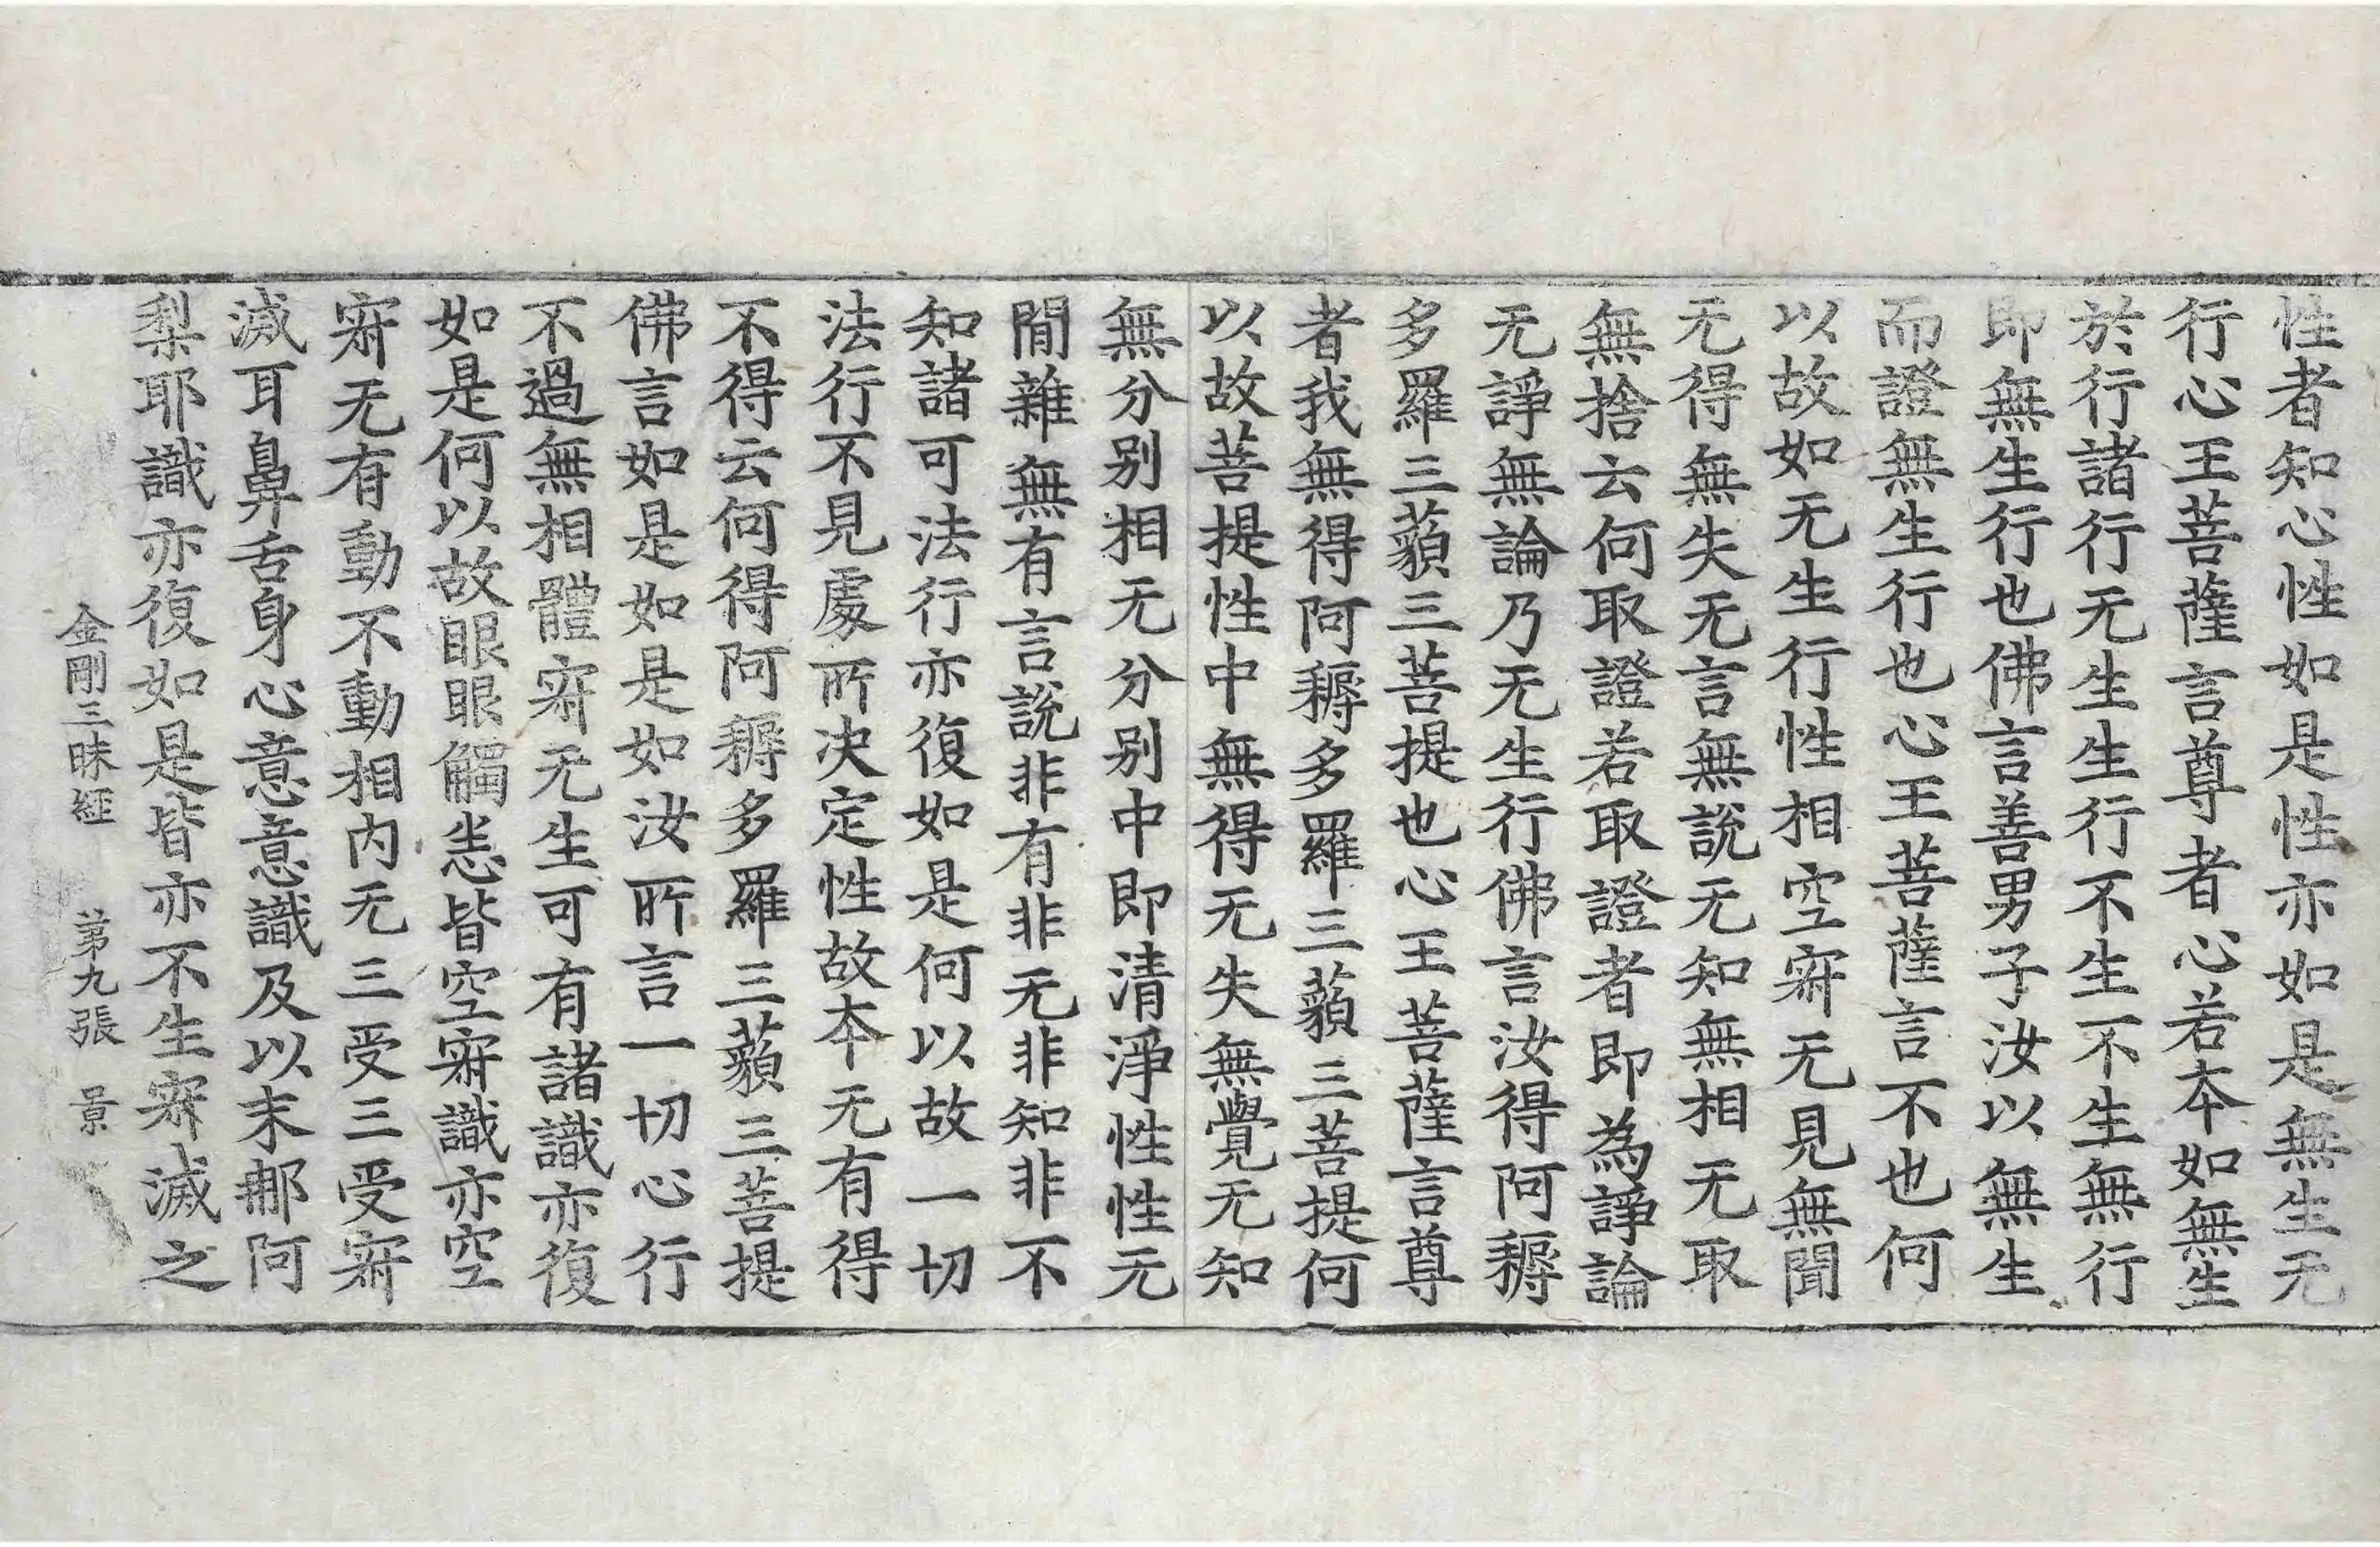 性者知心性如是性亦如是無生无
行心王菩薩言尊者心若本如無生
於行諸行无生生行不生不生無行
即無生行也佛言善男子汝以無生
而證無生行也心王菩薩言不也何
以故如无生行性相空𡧯无見無聞
无得無失无言無說无知無相无取
無捨云何取證若取證者即為諍論
无諍無論乃无生行佛言汝得阿耨
多羅三藐三菩提也心王菩薩言尊
者我無得阿耨多羅三藐三菩提何
以故菩提性中無得无失無覺无知
無分别相无分别中即清淨性性无
閒雜無有言說非有非无非知非不
知諸可法行亦復如是何以故一切
法行不見處所决定性故本无有得
不得云何得阿耨多羅三藐三菩提
佛言如是如是如汝所言一切心行
不過無相體𡧯无生可有諸識亦復
如是何以故眼眼觸悉皆空𡧯識亦空
𡧯无有動不動相内无三受三受𡧯
滅耳鼻舌身心意意識及以末那阿
梨耶識亦復如是皆亦不生𡧯滅之
金剛三昧經　第九張　景